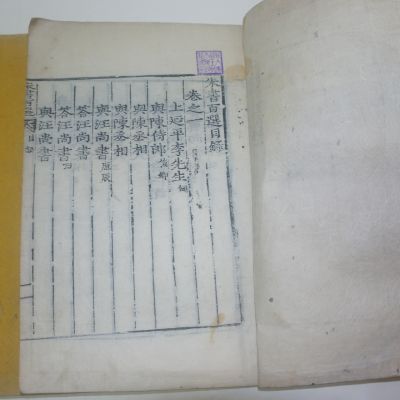 朱書百選目錄
卷之一
上延平李先生
與陳侍郎
與陳丞相
與陳丞相
與汪尚書
答汪尚書
答汪尚書
與汪尚書